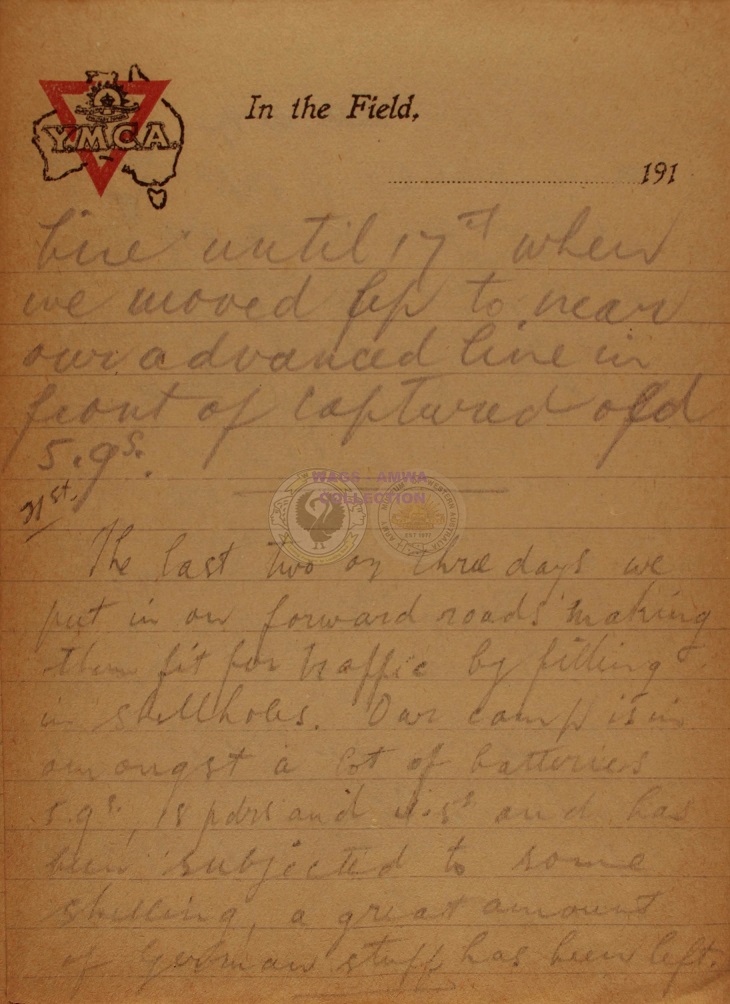 YMCA
In the Field,
191
line until 17th when
we moved up to near
our advanced line in
front of captured old
5.9s.
WAGS - AMWA
COLLECTION
21st.
The last two or three days we
put in on forward roads making
them fit for traffic by filling
in shellholes. Our camp is in
amongst a lot of batteries
5.9s, 18 pdrs and 4.5s and has
been subjected to some
shelling, a great amount
of German stuff has been left.